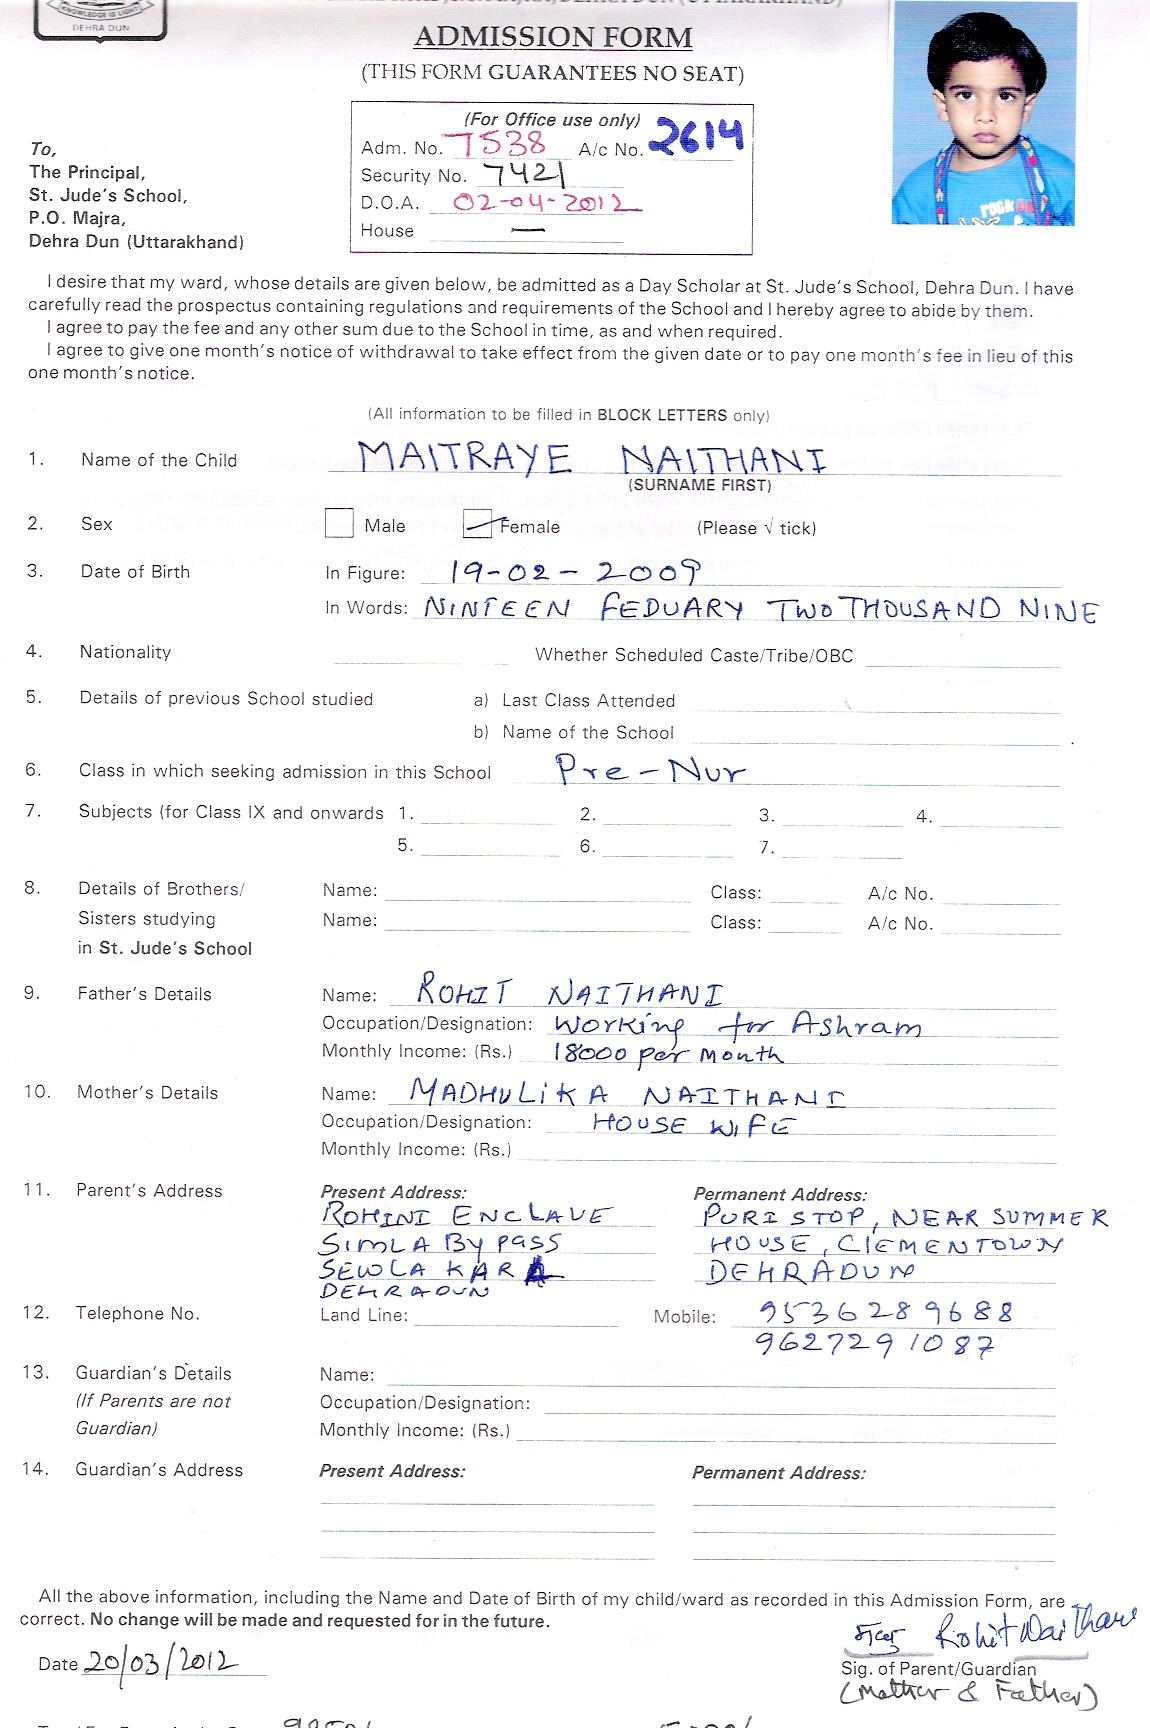 KNOWLEDGE IS LIGHT
DEHRA DUN
ADMISSION FORM
(THIS FORM GUARANTEES NO SEAT)
(For Office use only)
Adm. No. 7538 A/c No. 2614
Security No. 7421
D.O.A. 02-04-2012
House —
To,
The Principal,
St. Jude's School,
P.O. Majra,
Dehra Dun (Uttarakhand)
ROCK
I desire that my ward, whose details are given below, be admitted as a Day Scholar at St. Jude's School, Dehra Dun. I have
carefully read the prospectus containing regulations and requirements of the School and I hereby agree to abide by them.
I agree to pay the fee and any other sum due to the School in time, as and when required.
I agree to give one month's notice of withdrawal to take effect from the given date or to pay one month's fee in lieu of this
one month's notice.
(All information to be filled in BLOCK LETTERS only)
1. Name of the Child MAITRAYE NAITHANI
(SURNAME FIRST)
2. Sex Male Female (Please √ tick)
3. Date of Birth In Figure: 19-02-2009
In Words: NINTEEN FEDUARY TWO THOUSAND NINE
4. Nationality Whether Scheduled Caste/Tribe/OBC
5. Details of previous School studied a) Last Class Attended
b) Name of the School
6. Class in which seeking admission in this School Pre-Nur
7. Subjects (for Class IX and onwards 1. 2. 3. 4.
5. 6. 7.
8. Details of Brothers/ Name: Class: A/c No.
Sisters studying Name: Class: A/c No.
in St. Jude's School
9. Father's Details Name: ROHIT NAITHANI
Occupation/Designation: Working for Ashram
Monthly Income: (Rs.) 18000 per Month
10. Mother's Details Name: MADHULiKA NAITHANI
Occupation/Designation: HOUSE WIFE
Monthly Income: (Rs.)
11. Parent's Address Present Address: Permanent Address:
ROHINI ENCLAVE PURI STOP, NEAR SUMMER
SIMLA BY PASS HOUSE, CLEMENTOWN
SEWLA KARA DEHRADUN
DEHRADUN
12. Telephone No. Land Line: Mobile: 9536289688
9627291087
13. Guardian's Details Name:
(If Parents are not Occupation/Designation:
Guardian) Monthly Income: (Rs.)
14. Guardian's Address Present Address: Permanent Address:
All the above information, including the Name and Date of Birth of my child/ward as recorded in this Admission Form, are
correct. No change will be made and requested for in the future.
Rohit Naithani
Date 20/03/2012
Sig. of Parent/Guardian
(Mother & Father)